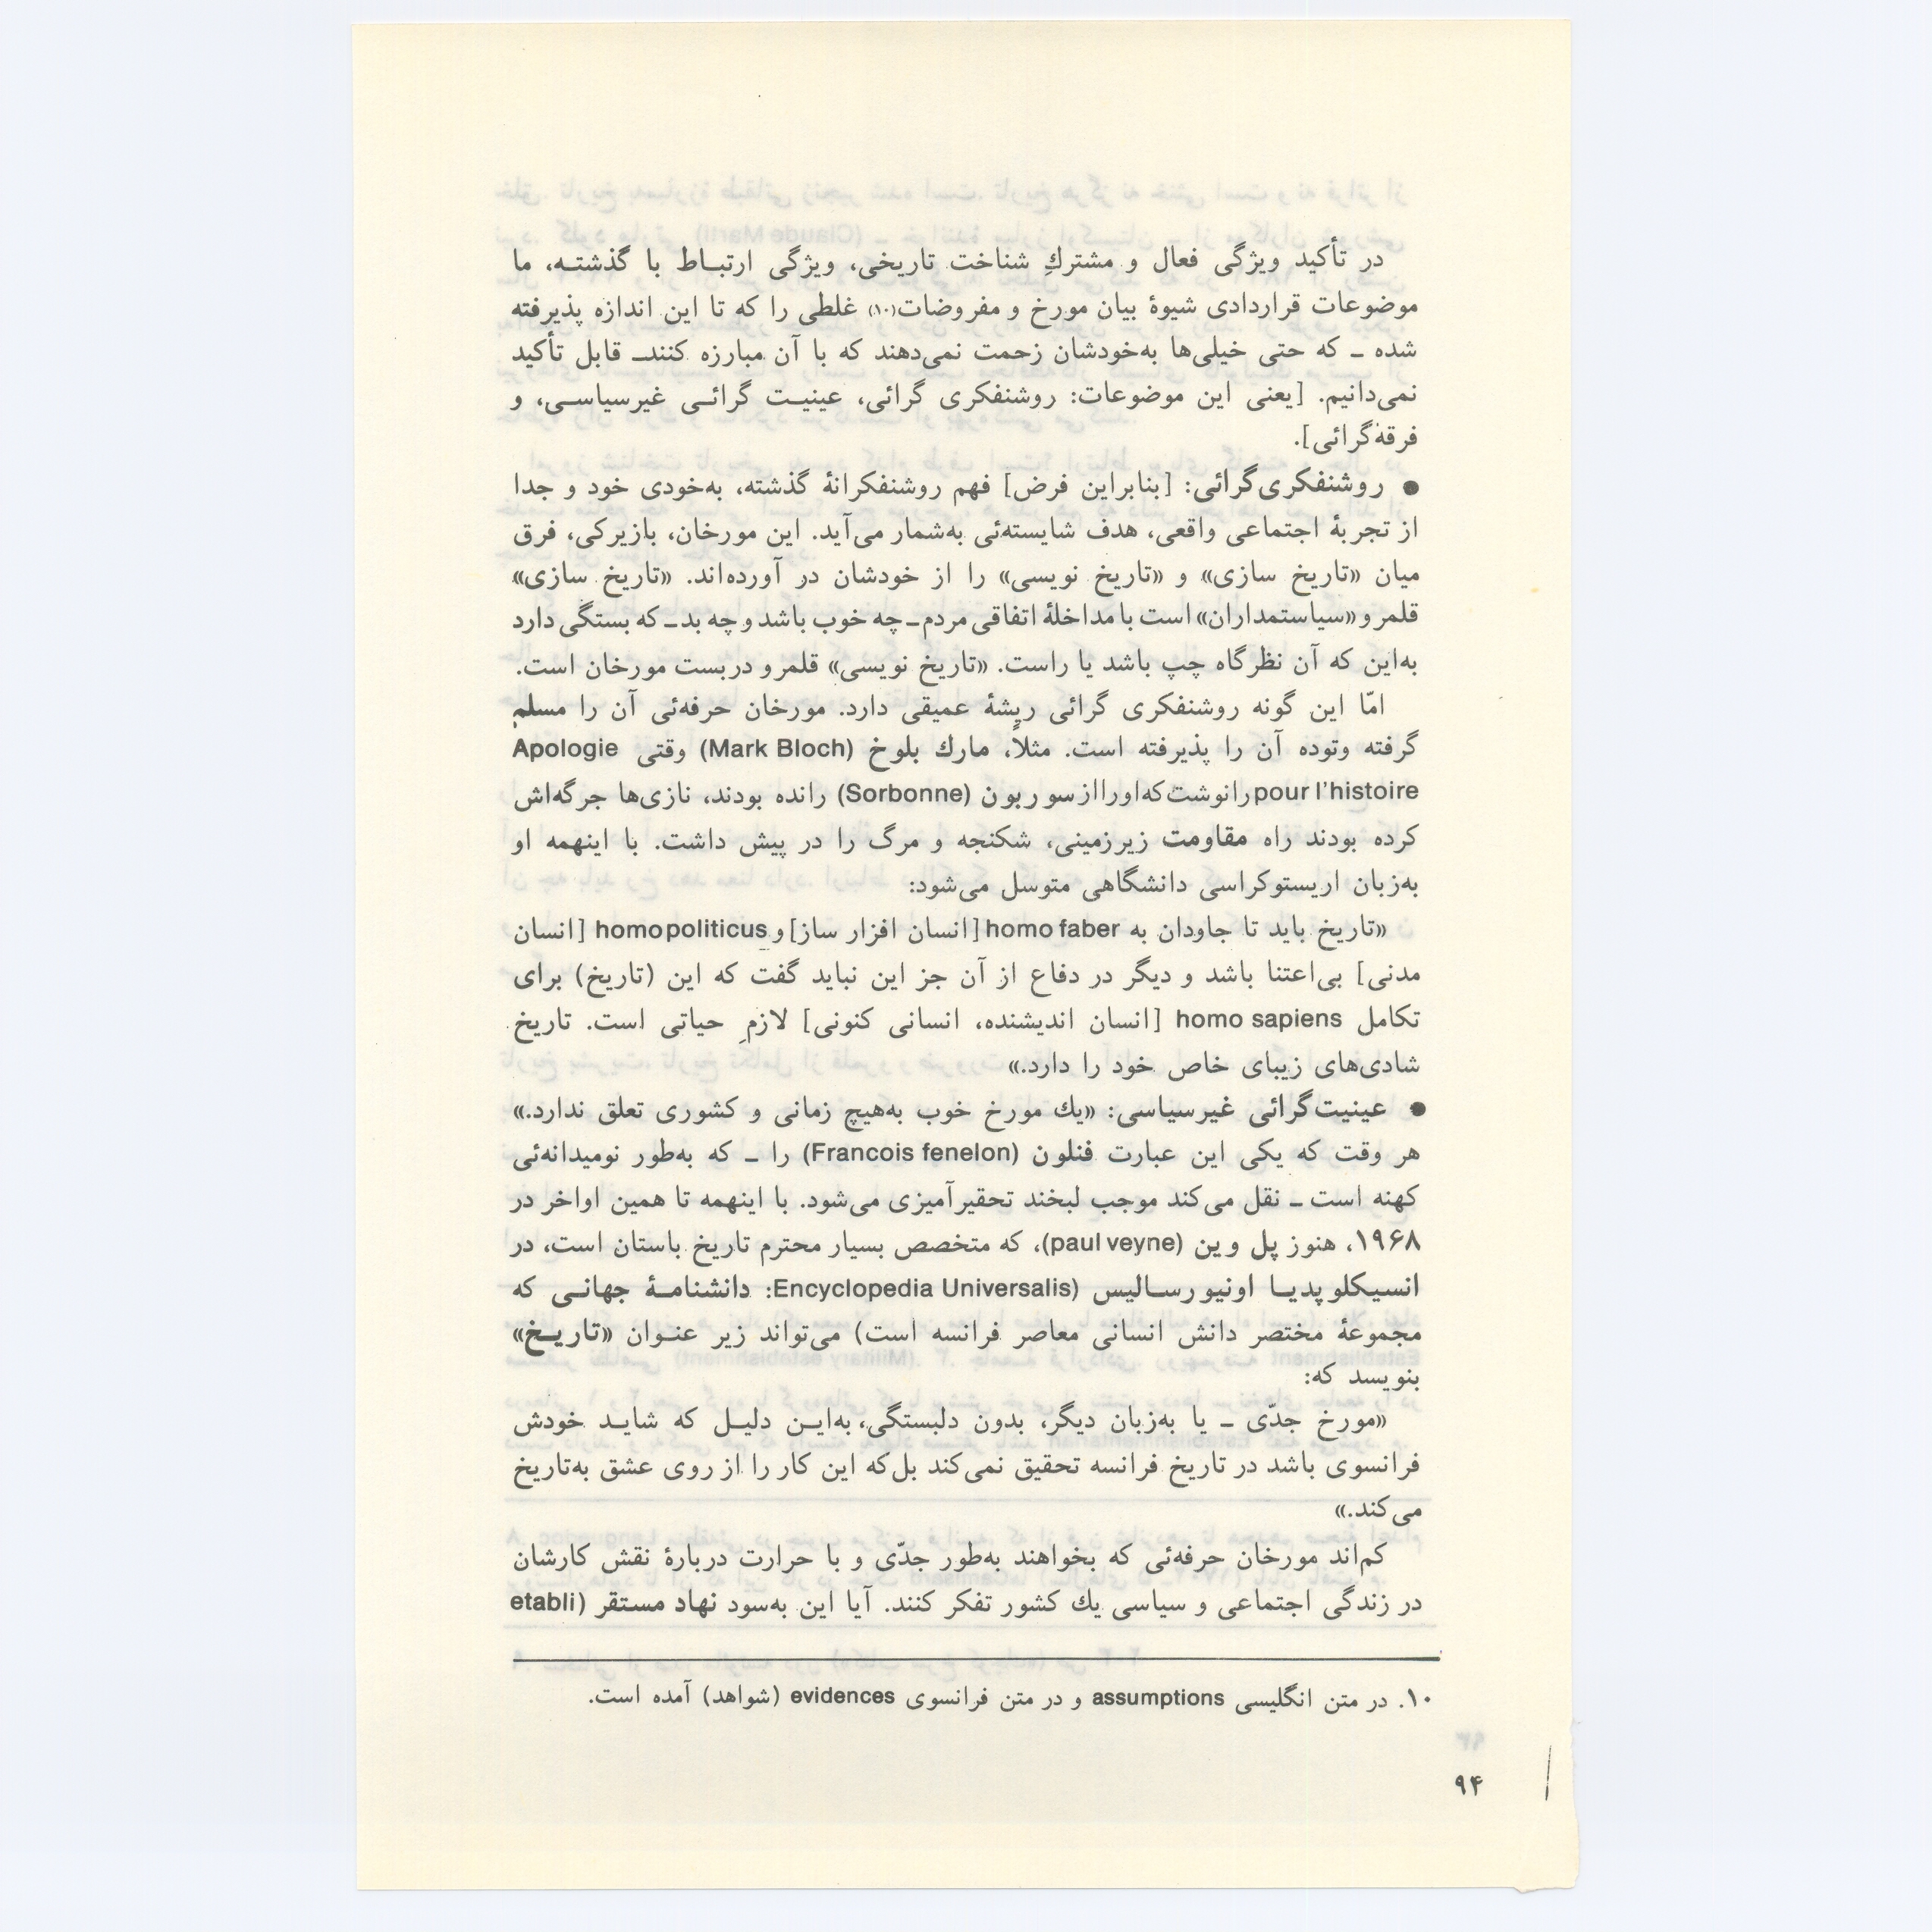 در تأکید ویژگی فعال و مشتركِ شناخت تاریخی، ویژگی ارتباط با گذشته، ما
موضوعات قراردادی شیوهٔ بیان مورخ و مفروضات(۱۰) غلطی را که تا این اندازه پذیرفته
شده ـ که حتی خیلی‌ها به‌خودشان زحمت نمی‌دهند که با آن مبارزه کنندـ قابل تأکید
نمی‌دانیم. [یعنی این موضوعات: روشنفکری گرائی، عینیت گرائی غیرسیاسی، و
فرقه‌گرائی].
● روشنفکری‌گرائی: [بنابراین فرض] فهم روشنفکرانهٔ گذشته، به‌خودی خود و جدا
از تجربهٔ اجتماعی واقعی، هدف شایسته‌ئی به‌شمار می‌آید. این مورخان، بازیرکی، فرق
میان «تاریخ سازی» و «تاریخ نویسی» را از خودشان در آورده‌اند. «تاریخ سازی»
قلمرو «سیاستمداران» است با مداخلهٔ اتفاقی مردم ـ چه خوب باشد و چه بد ـ که بستگی دارد
به‌این که آن نظرگاه چپ باشد یا راست. «تاریخ نویسی» قلمرو دربست مورخان است.
امّا این گونه روشنفکری گرائی ریشهٔ عمیقی دارد. مورخان حرفه‌ئی آن را مسلم
گرفته وتوده آن را پذیرفته است. مثلاً، مارك بلوخ (Mark Bloch) وقتی Apologie
pour l’histoire را نوشت که او را از سوربون (Sorbonne) رانده بودند، نازی‌ها جرگه‌اش
کرده بودند راه مقاومت زیرزمینی، شکنجه و مرگ را در پیش داشت. با اینهمه او
به‌زبان اریستوکراسی دانشگاهی متوسل می‌شود:
«تاریخ باید تا جاودان به homo faber [انسان افزار ساز] و homo politicus [انسان
مدنی] بی‌اعتنا باشد و دیگر در دفاع از آن جز این نباید گفت که این (تاریخ) برای
تکامل homo sapiens [انسان اندیشنده، انسانی کنونی] لازمِ حیاتی است. تاریخ
شادی‌های زیبای خاص خود را دارد.»
● عینیت‌گرائی غیرسیاسی: «یك مورخ خوب به‌هیچ زمانی و کشوری تعلق ندارد.»
هر وقت که یکی این عبارت فنلون (Francois fenelon) را ـ که به‌طور نومیدانه‌ئی
کهنه است ـ نقل می‌کند موجب لبخند تحقیرآمیزی می‌شود. با اینهمه تا همین اواخر در
۱۹۶۸، هنوز پل وین (paul veyne)، که متخصص بسیار محترم تاریخ باستان است، در
انسیکلوپدیا اونیورسالیس (Encyclopedia Universalis: دانشنامهٔ جهانی که
مجموعهٔ مختصر دانش انسانی معاصر فرانسه است) می‌تواند زیر عنوان «تاریخ»
بنویسد که:
«مورخ جدّی ـ یا به‌زبان دیگر، بدون دلبستگی، به‌این دلیل که شاید خودش
فرانسوی باشد در تاریخ فرانسه تحقیق نمی‌کند بل‌که این کار را از روی عشق به‌تاریخ
می‌کند.»
کم‌اند مورخان حرفه‌ئی که بخواهند به‌طور جدّی و با حرارت دربارهٔ نقش کارشان
در زندگی اجتماعی و سیاسی یك کشور تفکر کنند. آیا این به‌سود نهاد مستقر (etabli
۱۰. در متن انگلیسی assumptions و در متن فرانسوی evidences (شواهد) آمده است.
۹۴